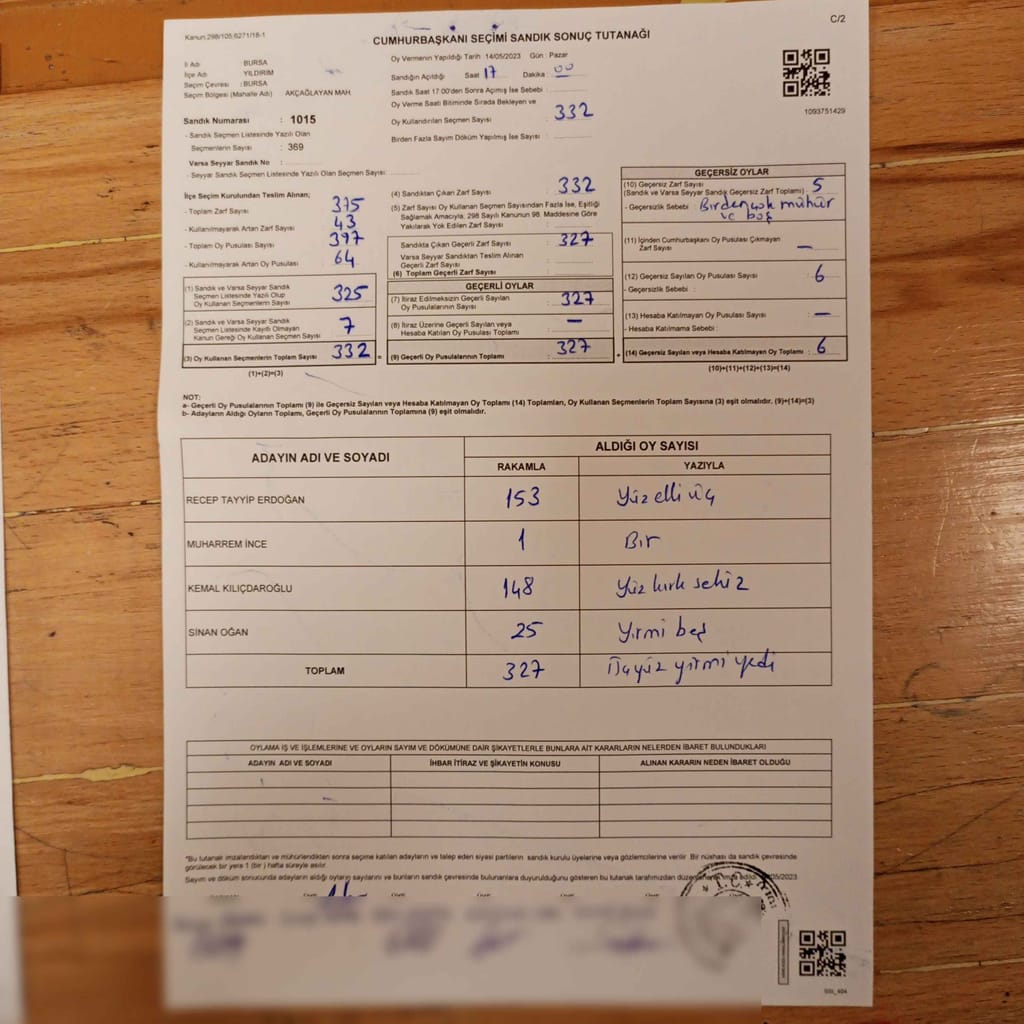 C/2
Kanun:298/105;6271/18-1
CUMHURBAŞKANI SEÇİMİ SANDIK SONUÇ TUTANAĞI
İl Adı : BURSA
İlçe Adı YILDIRIM
Seçim Çevresi : BURSA
Seçim Bölgesi (Mahalle Adı) AKÇAĞLAYAN MAH.
Sandık Numarası : 1015
- Sandık Seçmen Listesinde Yazılı Olan
Seçmenlerin Sayısı : 369
Varsa Seyyar Sandık No :
- Seyyar Sandık Listesinde Yazılı Olan Seçmen Sayısı:
Oy Vermenin Yapıldığı Tarih 14/05/2023 Gün : Pazar
Sandığın Açıldığı Saat 17 Dakika 00
Sandık Saat 17.00'den Sonra Açımış İse Sebebi :
Oy Verme Saati Bitiminde Sırada Bekleyen ve
Oy Kullandırılan Seçmen Sayısı : 332
Birden Fazla Sayım Döküm Yapılmış İse Sayısı :
1093751429
İlçe Seçim Kurulundan Teslim Alınan;
- Toplam Zarf Sayısı : 375
- Kullanılmayarak Artan Zarf Sayısı : 43
- Toplam Oy Pusulası Sayısı : 397
- Kullanılmayarak Artan Oy Pusulası : 64
(1) Sandık ve Varsa Seyyar Sandık
Seçmen Listesinde Yazılı Olup
Oy Kullanan Seçmenlerin Sayısı : 325
(2) Sandık ve Varsa Seyyar Sandık
Seçmen Listesinde Kayıtlı Olmayan
Kanun Gereği Oy Kullanan Seçmen Sayısı : 7
(3) Oy Kullanan Seçmenlerin Toplam Sayısı : 332 =
(1)+(2)=(3)
(4) Sandıktan Çıkan Zarf Sayısı : 332
(5) Zarf Sayısı Oy Kullanan Seçmen Sayısından Fazla İse, Eşitliği
Sağlamak Amacıyla, 298 Sayılı Kanunun 98. Maddesine Göre
Yakılarak Yok Edilen Zarf Sayısı :
Sandıkta Çıkan Geçerli Zarf Sayısı : 327
Varsa Seyyar Sandıktan Teslim Alınan
Geçerli Zarf Sayısı :
(6) Toplam Geçerli Zarf Sayısı :
GEÇERLİ OYLAR
(7) İtiraz Edilmeksizin Geçerli Sayılan
Oy Pusulalarının Sayısı : 327
(8) İtiraz Üzerine Geçerli Sayılan veya
Hesaba Katılan Oy Pusulası Toplamı : —
(9) Geçerli Oy Pusulalarının Toplamı : 327 +
GEÇERSİZ OYLAR
(10) Geçersiz Zarf Sayısı
(Sandık ve Varsa Seyyar Sandık Geçersiz Zarf Toplamı) : 5
- Geçersizlik Sebebi : Birden çok mühür
ve boş
(11) İçinden Cumhurbaşkanı Oy Pusulası Çıkmayan
Zarf Sayısı : —
(12) Geçersiz Sayılan Oy Pusulası Sayısı : 6
- Geçersizlik Sebebi :
(13) Hesaba Katılmayan Oy Pusulası Sayısı : —
- Hesaba Katılmama Sebebi :
(14) Geçersiz Sayılan veya Hesaba Katılmayan Oy Toplamı : 6
(10)+(11)+(12)+(13)=(14)
NOT:
a- Geçerli Oy Pusulalarının Toplamı (9) ile Geçersiz Sayılan veya Hesaba Katılmayan Oy Toplamı (14) Toplamları, Oy Kullanan Seçmenlerin Toplam Sayısına (3) eşit olmalıdır. (9)+(14)=(3)
b- Adayların Aldığı Oyların Toplamı, Geçerli Oy Pusulalarının Toplamına (9) eşit olmalıdır.
ADAYIN ADI VE SOYADI ALDIĞI OY SAYISI
RAKAMLA YAZIYLA
RECEP TAYYİP ERDOĞAN 153 Yüz elli üç
MUHARREM İNCE 1 Bir
KEMAL KILIÇDAROĞLU 148 Yüz kırk sekiz
SİNAN OĞAN 25 Yirmi beş
TOPLAM 327 Üçyüz yirmi yedi
OYLAMA İŞ VE İŞLEMLERİNE VE OYLARIN SAYIM VE DÖKÜMÜNE DAİR ŞİKAYETLERLE BUNLARA AİT KARARLARIN NELERDEN İBARET BULUNDUKLARI
ADAYIN ADI VE SOYADI İHBAR İTİRAZ VE ŞİKAYETİN KONUSU ALINAN KARARIN NEDEN İBARET OLDUĞU
*Bu tutanak imzalandıktan ve mühürlendikten sonra seçime katılan adayların ve talep eden siyasi partilerin sandık kurulu üyelerine veya gözlemcilerine verilir. Bir nüshası da sandık çevresinde
görülecek bir yere 1 (bir ) hafta süreyle asılır.
Sayım ve döküm sonucunda adayların aldığı oyların sayılarını ve bunların sandık çevresinde bulunanlara duyurulduğunu gösteren bu tutanak tarafımızdan imza edildi. /05/2023
T.C.